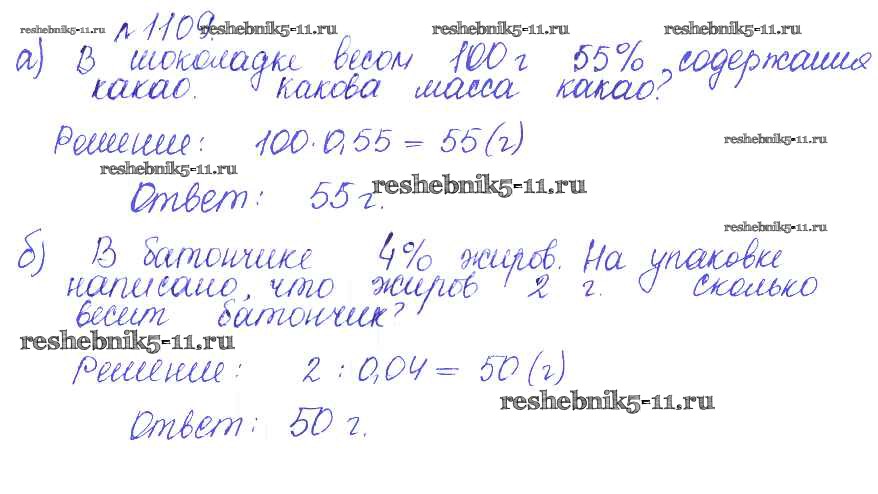 reshebnik5-11.ru № 1109. reshebnik5-11.ru reshebnik5-11.ru reshebnik5-11.ru
а) В шоколадке весом 100 г 55% содержания
какао. Какова масса какао?
Решение: 100 · 0,55 = 55 (г) reshebnik5-11.ru
reshebnik5-11.ru
Ответ: 55 г. reshebnik5-11.ru
reshebnik5-11.ru
б) В батончике 4% жиров. На упаковке
написано, что жиров 2 г. Сколько
весит батончик?
reshebnik5-11.ru
Решение: 2 : 0,04 = 50 (г)
reshebnik5-11.ru
Ответ: 50 г.